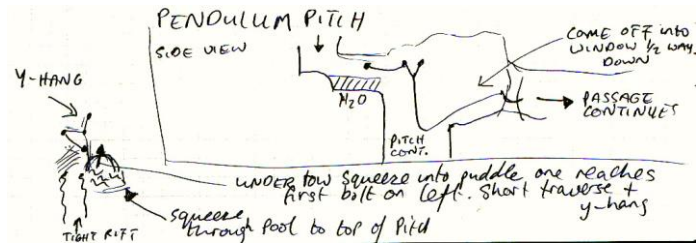 PENDULUM PITCH
SIDE VIEW
COME OFF INTO
WINDOW 1/2 WAY
DOWN
Y-HANG
H2O
PASSAGE
CONTINUES
PITCH
CONT.
UNDER low squeeze into puddle one reaches
first bolt on left. Short traverse +
y-hang
squeeze
through Pool to top of Pitch
TIGHT RIFT